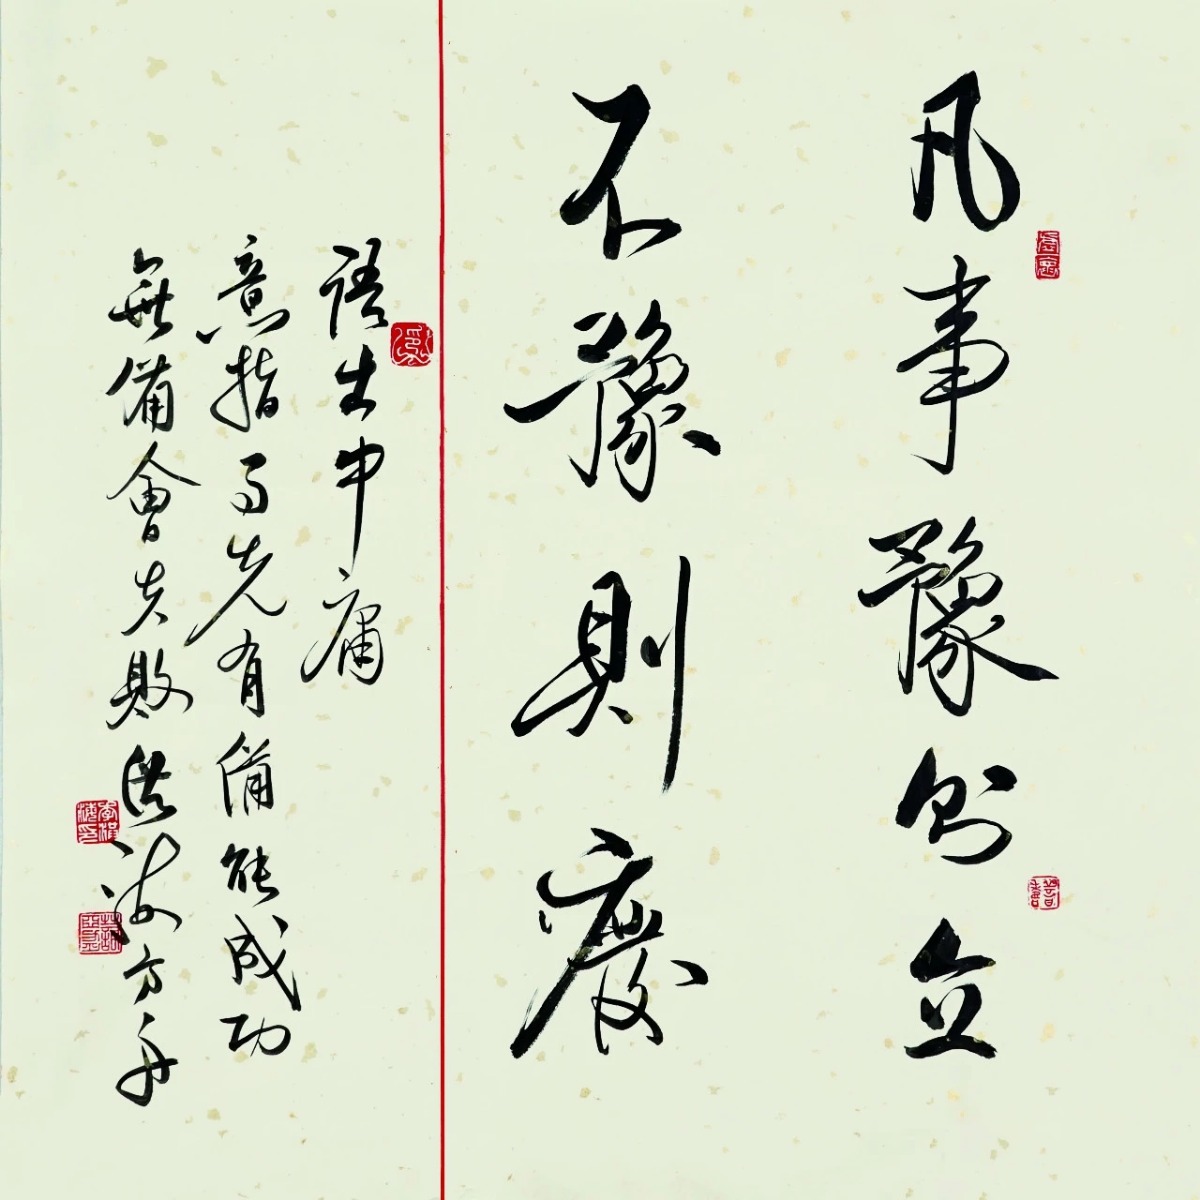 凡事豫則立
不豫則廢
語出中庸
意指事先有備能成功
無備會失敗洪海方舟